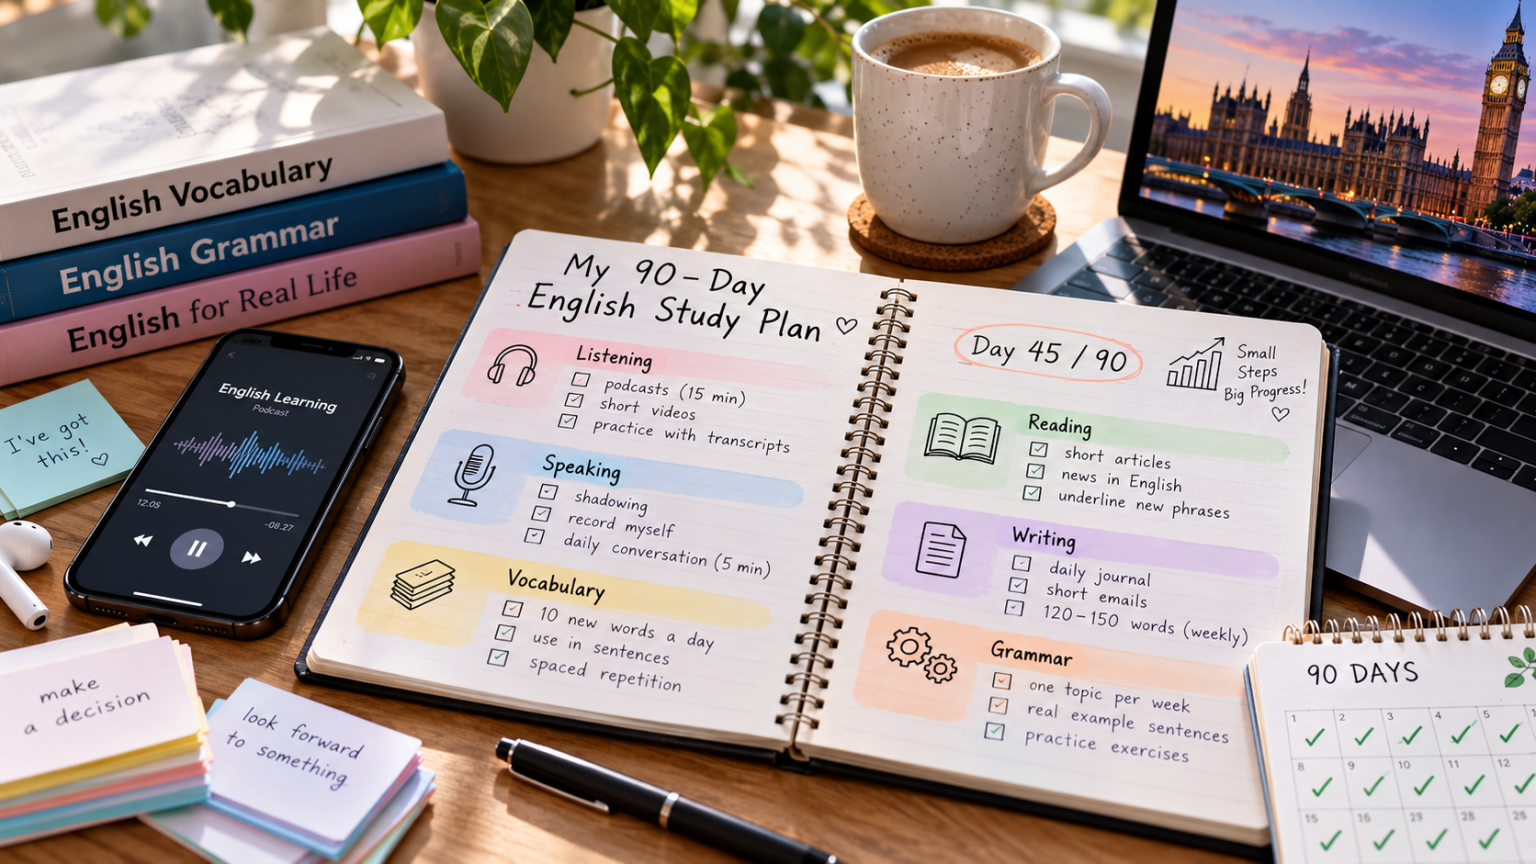 English Vocabulary
English Grammar
English for Real Life
I've got
this!
English Learning
Podcast
12:05
-08:27
make
a decision
look forward
to something
My 90-Day
English Study Plan
Listening
podcasts (15 min)
short videos
practice with transcripts
Speaking
shadowing
record myself
daily conversation (5 min)
Vocabulary
10 new words a day
use in sentences
spaced repetition
Day 45 / 90
Small
Steps
Big Progress!
Reading
short articles
news in English
underline new phrases
Writing
daily journal
short emails
120-150 words (weekly)
Grammar
one topic per week
real example sentences
practice exercises
90 DAYS
1 2 3 4 5
8 9 10 11 12
15 16 28